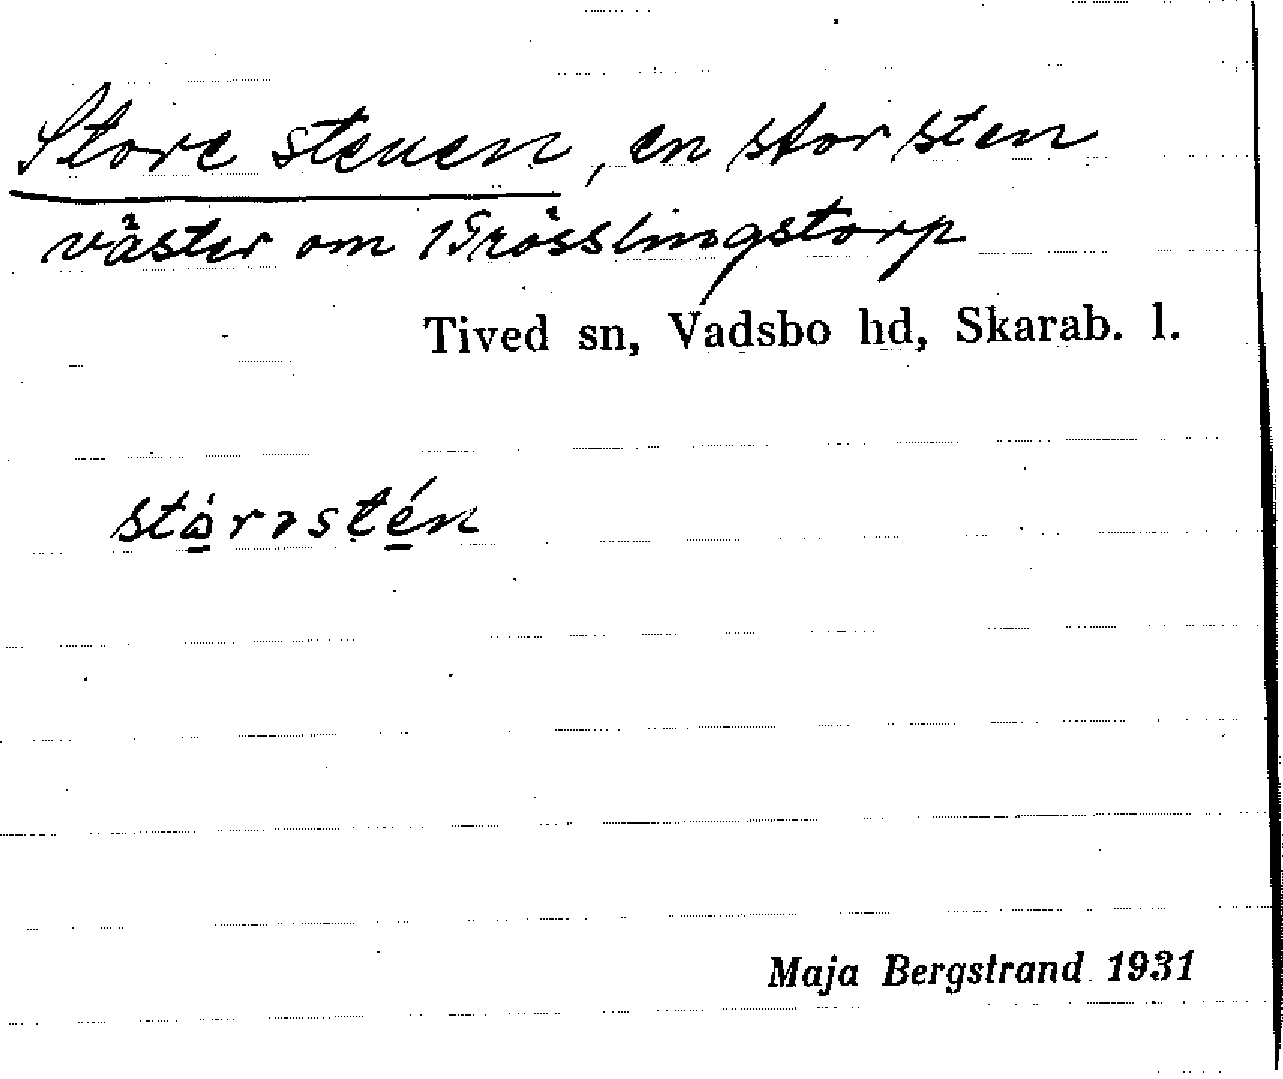 Store stenen, en stor sten
väster om 1 Trösslingstorp
Tived sn, Vadsbo hd, Skarab. l.
Maja Bergstrand 1931